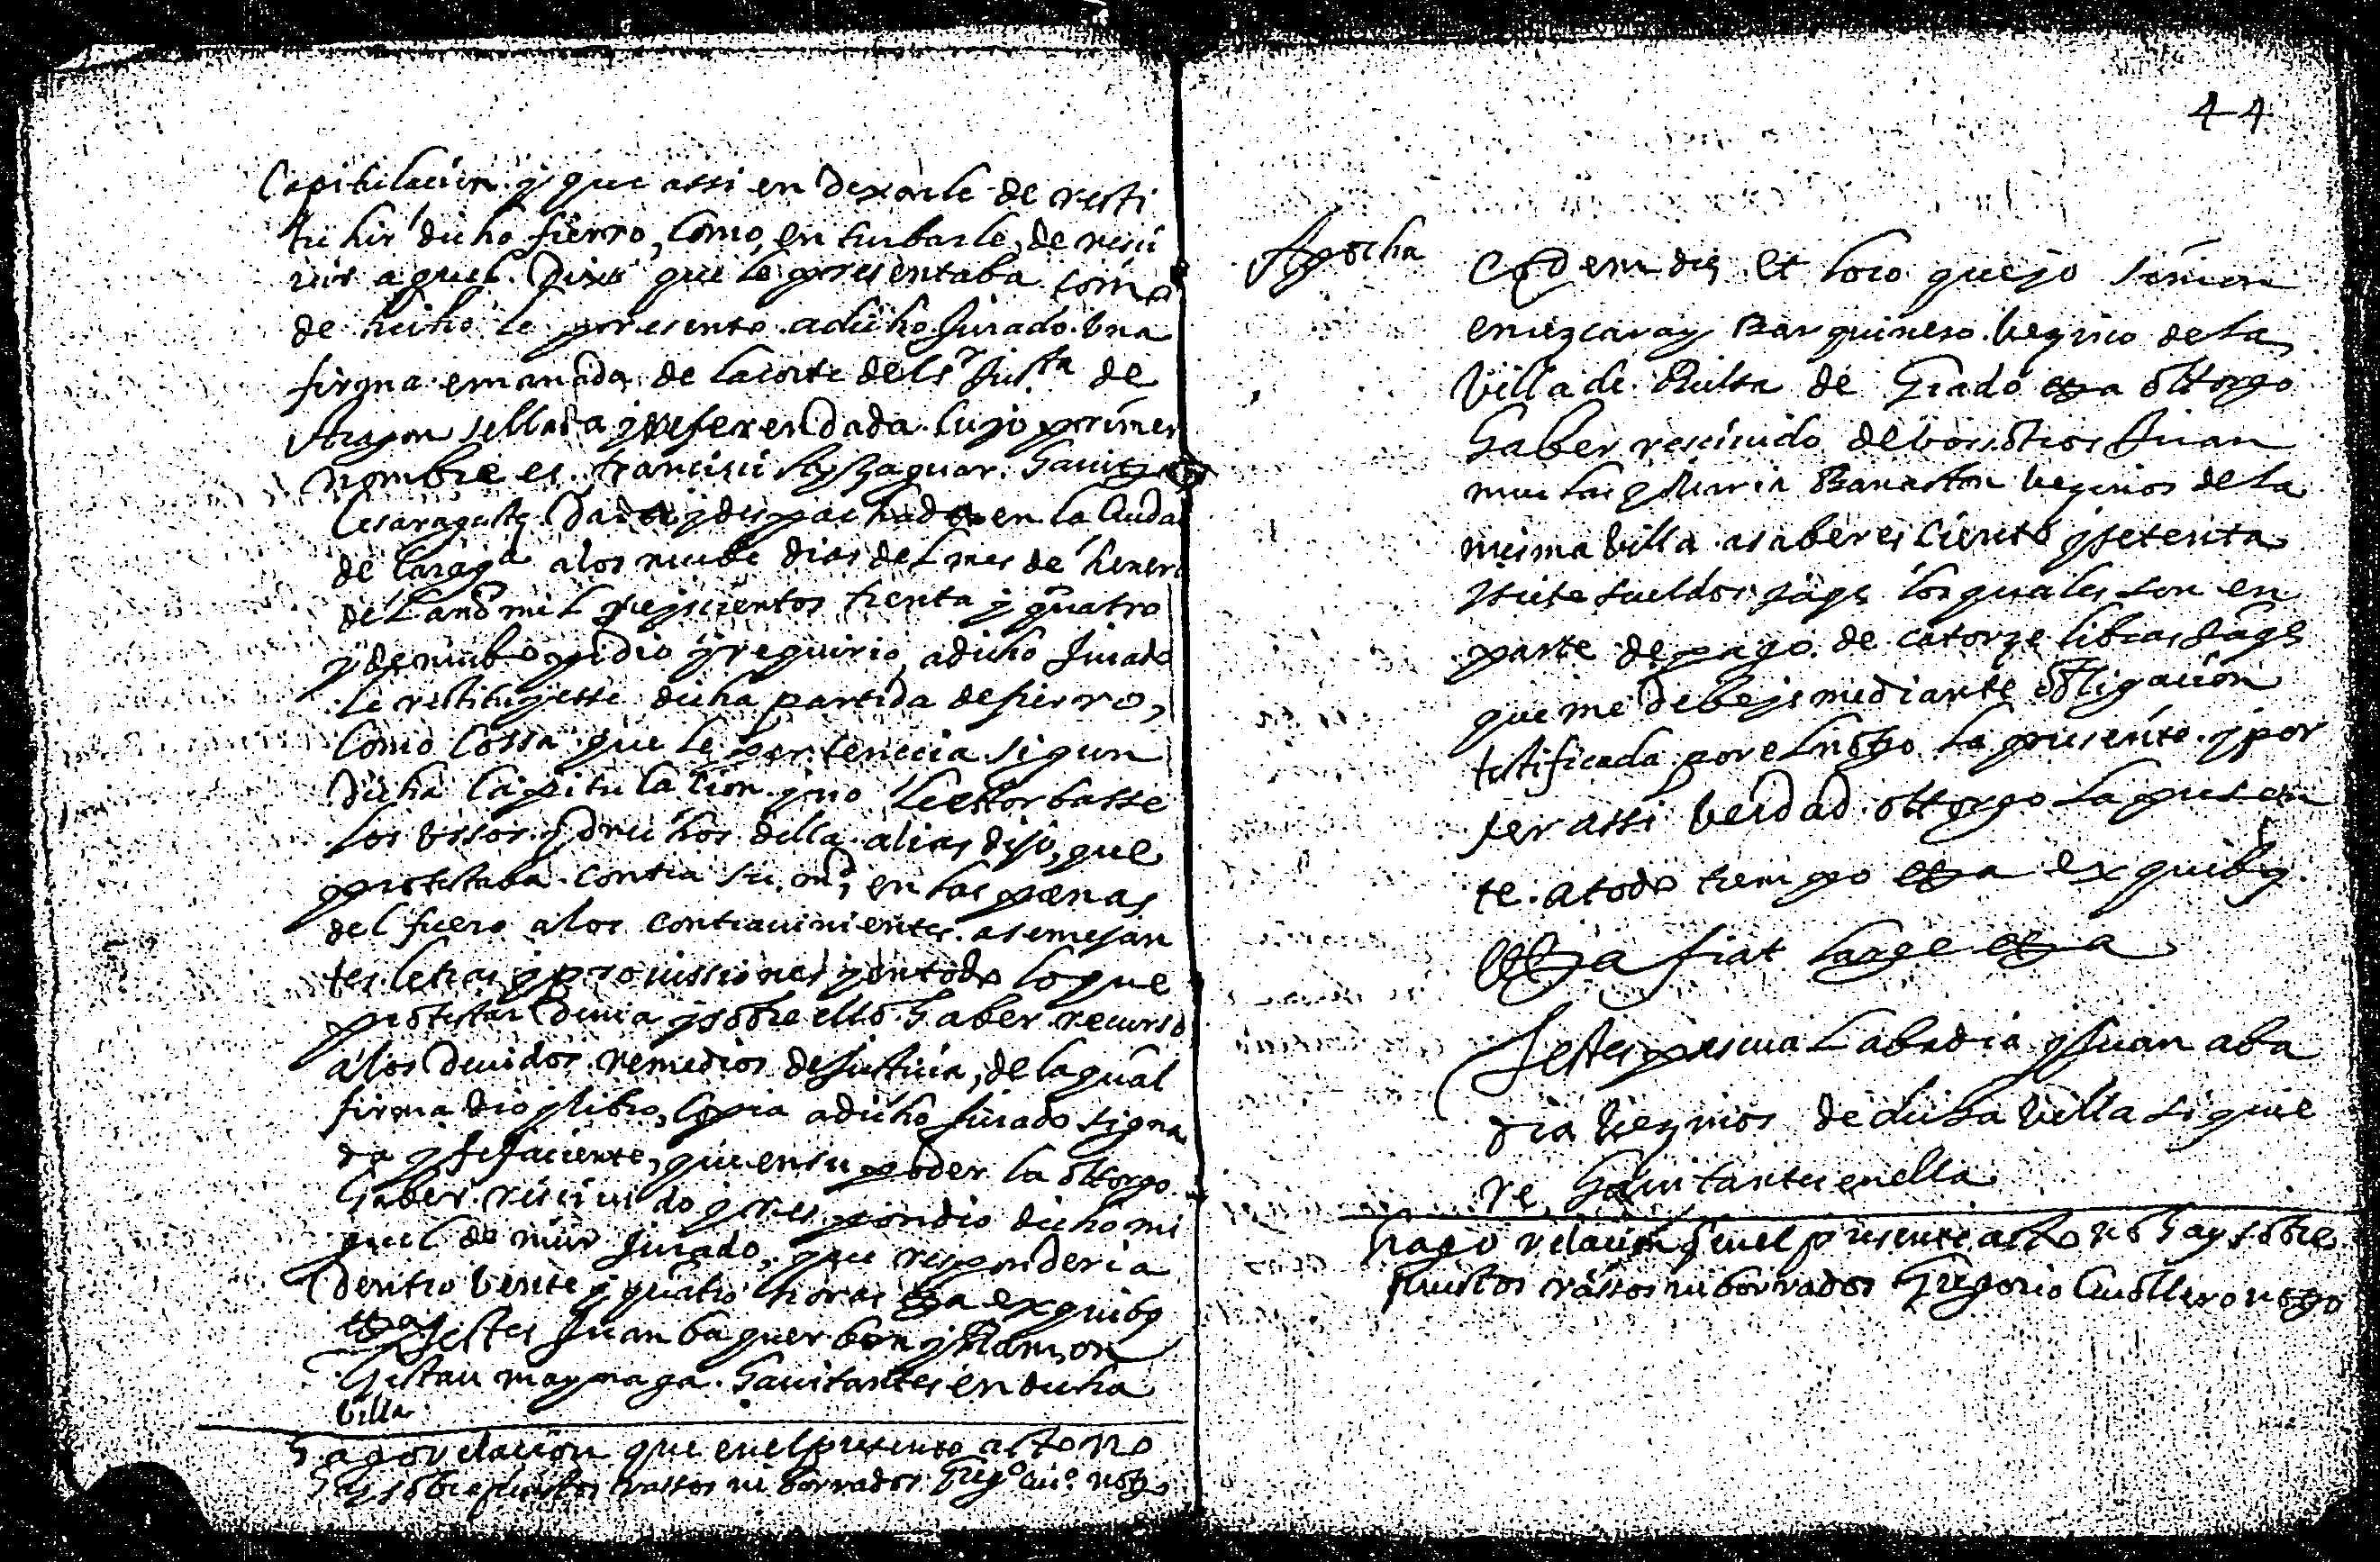 Capitulacion y que assi en dexarle de resti
tuhir dicho fierro, como, en turbarle, de reciu
uir aquel. Dixo que le presentaba como
de hecho le presento a dicho Jurado. Una
firma emanada de la corte del Sr Justa de
Aragon sellada y referendada cuyo primer
nombre es. francisci
Cesarauguste. Dada y despachada en la Ciudad
de Caragça a los nuebe dias del mes de henero
del año mil seyscientos trenta y quatro
y de nuebo pidio y requirio, a dicho Jurado
le restituyesse dicha partida de fierro,
como cossa que le pertenecia sigun
dicha Capitulacion y no le estorbasse
los ussos y drechos della. alias dijo, que
protestaba. contra su md, en las penas
del fuero a los contrauinientes. a semejan
tes letras y prouissiones y en todo lo que
protestar deuia y sobre ello haber recurso
a los deuidos remedios de Justicia, de la qual
firma dio y libro, copia a dicho Jurado signa
da y fefaciente, que en su poder la ottorgo
haber reciuido y respondio dicho mi
guel de mur Jurado, que responderia
dentro bente y quatro horas etza ex quibus
etza Testes Juan baquer bon y Ramon
Gistau maynaga. hauitantes en dicha
villa.
hago relacion que en el presente acto no
hay sobrepuestos rassos ni borrados Gregº Cuiº notº
44
Apocha
Eodem die et loco que yo simon
enuezcaray Barquinero. vezino de la
Villa de de Grado etza ottorgo
haber resciuido de bossotros Juan
mur y Maria Banaston vezinos de la
misma villa. a saber es ciento y setenta
y siete sueldos jaqs los quales son en
parte de pago. de catorze libras Jaqs
que me debeys mediante obligacion
testificada por el notro la presente. y por
ser assi berdad. ottorgo la presen
te. a todo tiempo etza ex quibus
etza fiat large etza
Testes pascual abadia y Juan aba
dia vezinos de dicha villa siquie
re hauitantes en ella
hago relacion q en el presente acto no hay sobre
puestos rassos ni borrados Gregorio Cuollero noto